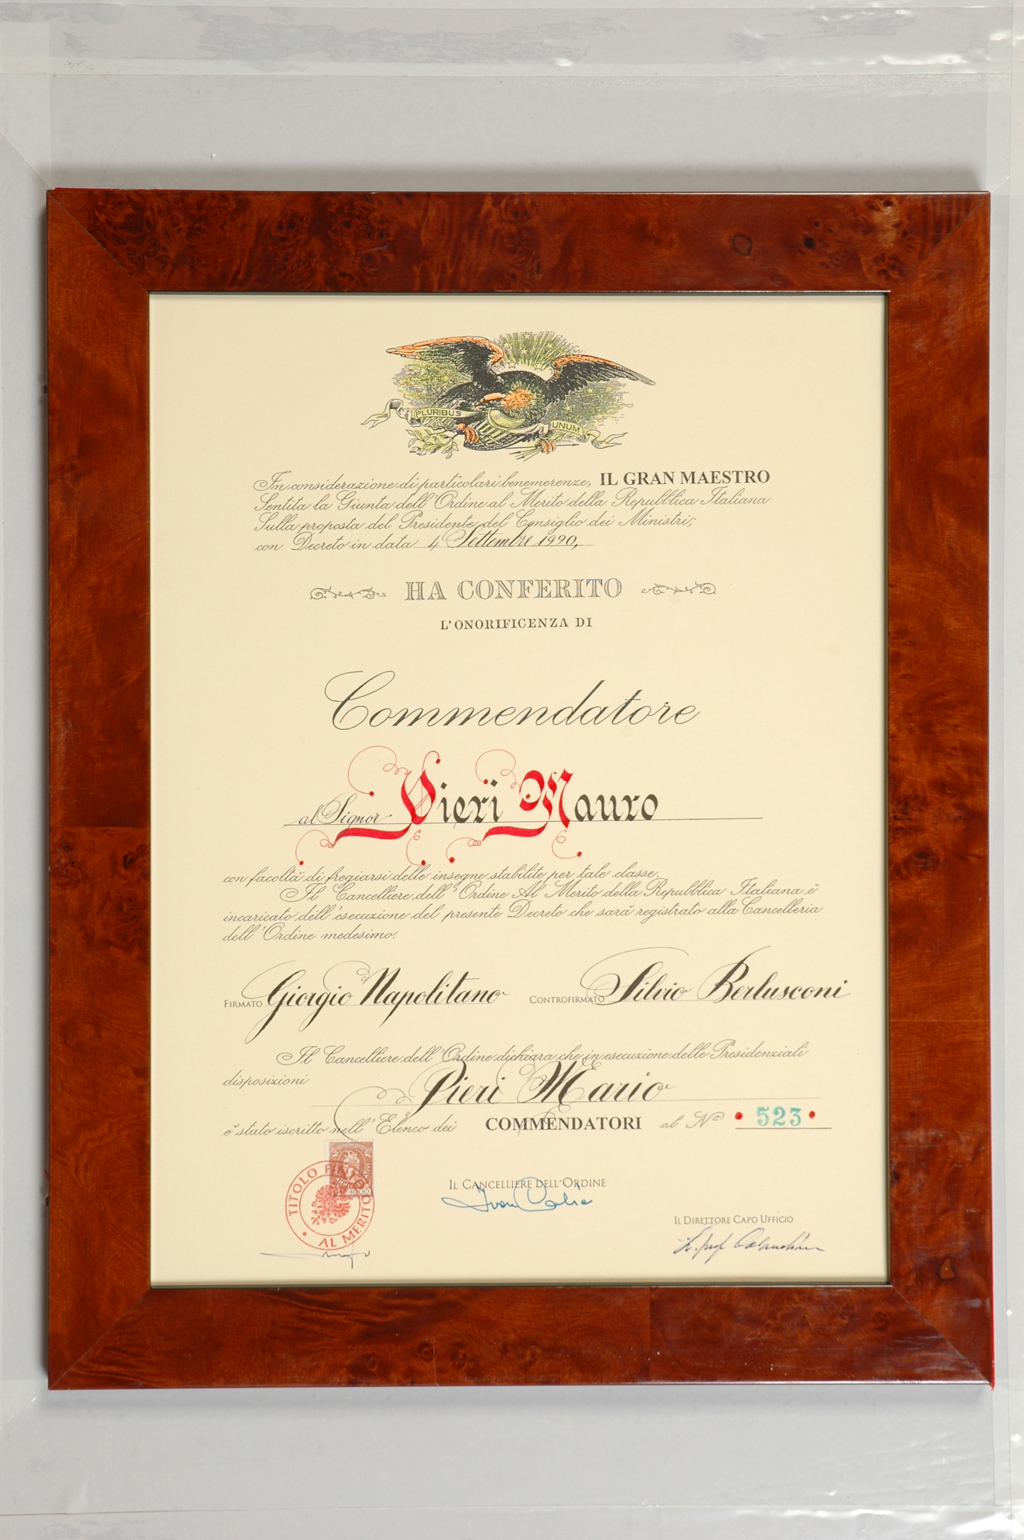 PLURIBUS UNUM
In considerazione di particolari benemerenze, IL GRAN MAESTRO
Sentita la Giunta dell'Ordine al Merito della Repubblica Italiana
Sulla proposta del Presidente del Consiglio dei Ministri;
con Decreto in data 4 Settembre 1990,
HA CONFERITO
L'ONORIFICENZA DI
Commendatore
al Signor Vieri Mauro
con facoltà di fregiarsi delle insegne stabilite per tale classe.
Il Cancelliere dell'Ordine Al Merito della Repubblica Italiana è
incaricato dell'esecuzione del presente Decreto che sarà registrato alla Cancelleria
dell'Ordine medesimo.
FIRMATO Giorgio Napolitano CONTROFIRMATO Silvio Berlusconi
Il Cancelliere dell'Ordine dichiara che in esecuzione delle Presidenziali
disposizioni Pieri Mario
è stato iscritto nell'Elenco dei COMMENDATORI al N° 523
TITOLO FINTO AL MERITO
IL CANCELLIERE DELL'ORDINE
IL DIRETTORE CAPO UFFICIO